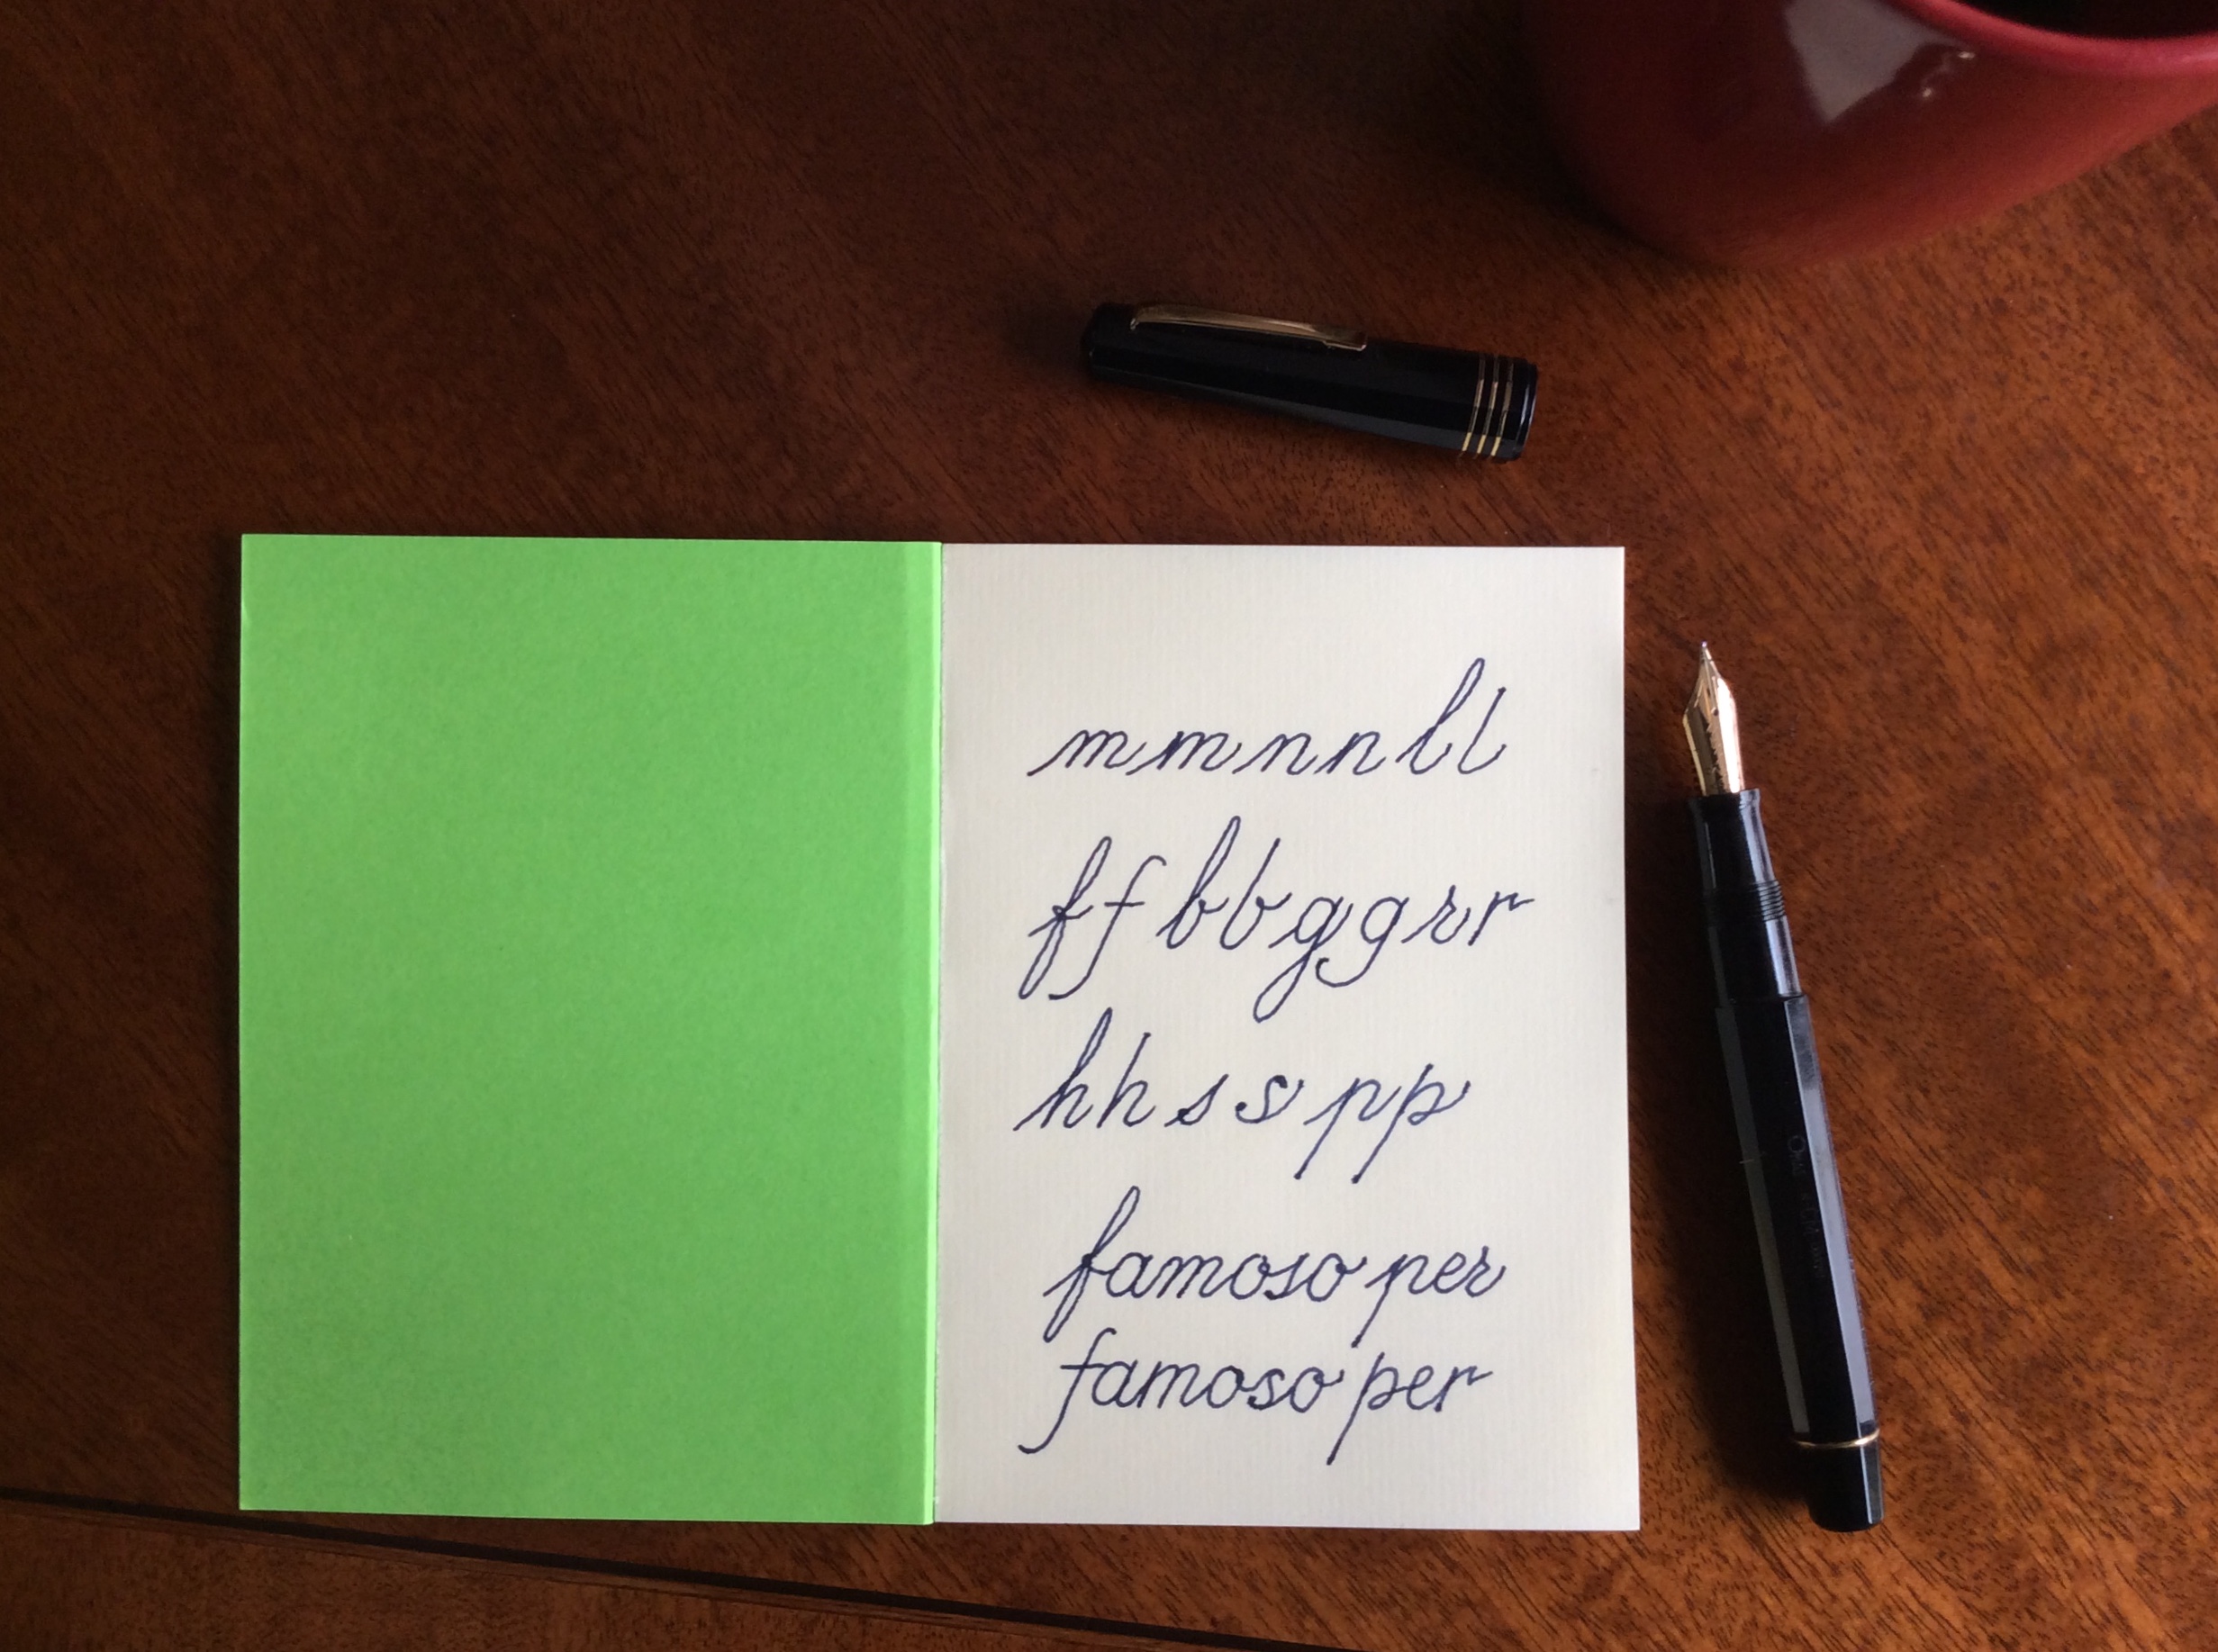 m m n n l l
f f b b g g r r
h h s s p p
famoso per
famoso per